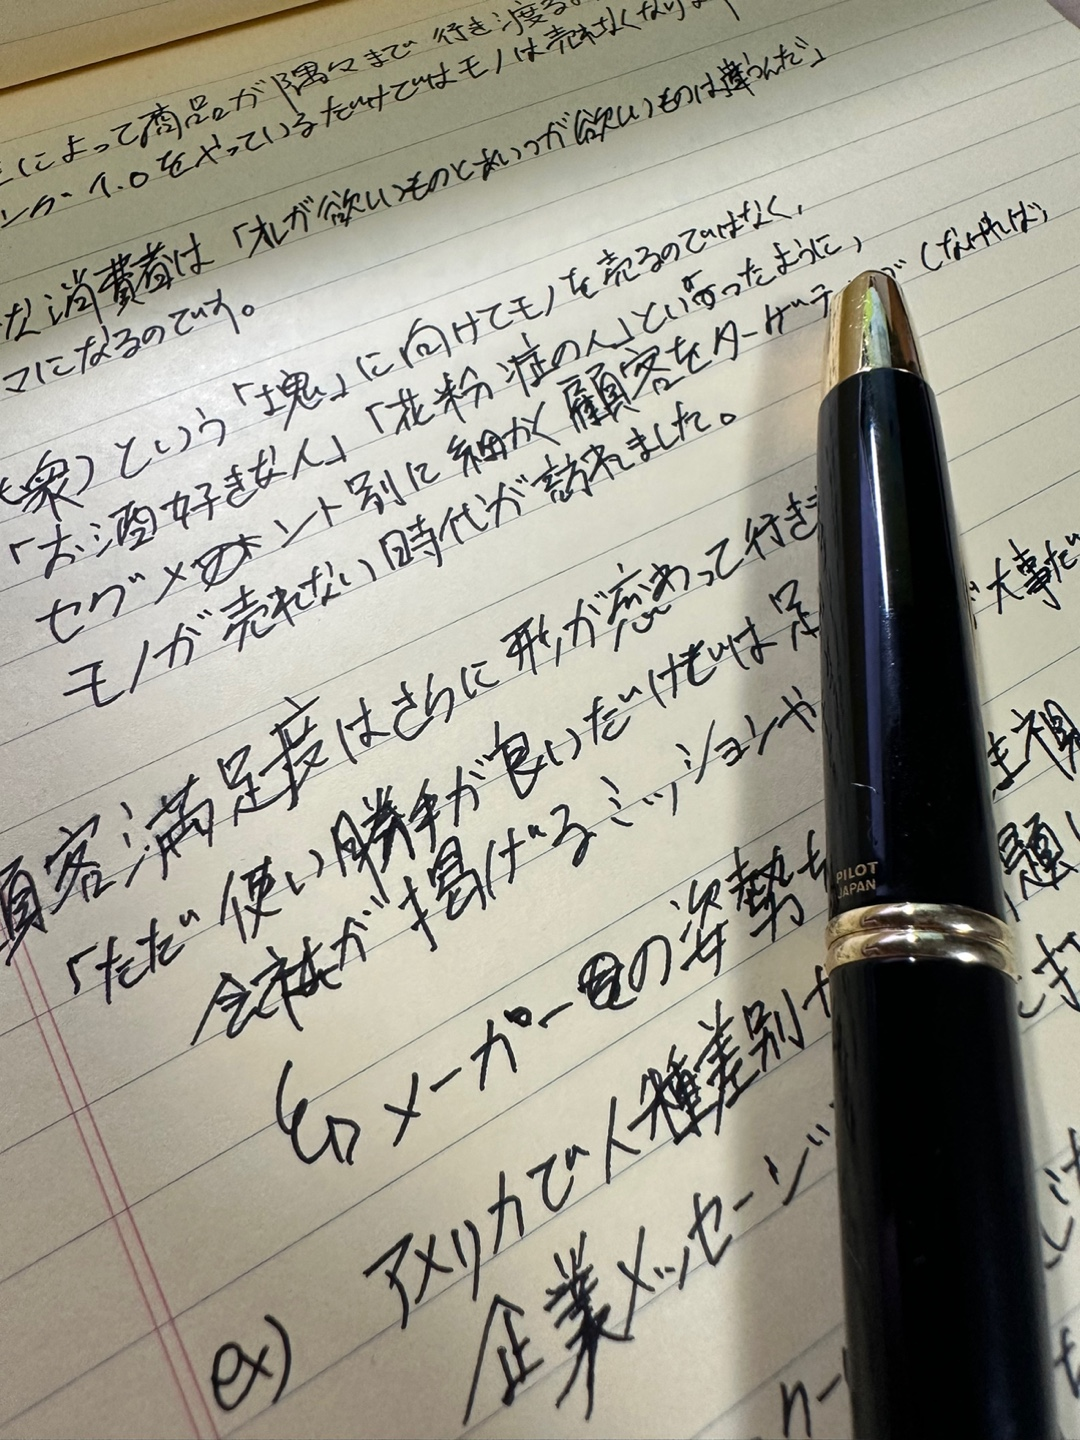 によって商品が隅々まで行き渡る
ング1.0をやっているだけではモノは売れなくなりま
な消費者は「オレが欲しいものとあいつが欲しいものは違うんだ」
マになるのです。
衆)という「塊」に向けてモノを売るのではなく、
「お酒好きな人」「花粉症の人」といったように、
セグメント別に細かく顧客をターゲテ しなければ、
モノが売れない時代が訪れました。
顧客満足度はさらに形が変わって行き 大事だ
「ただ使い勝手が良いだけでは足
会社が掲げるミッションや
メーカー の姿勢も 題
ex) アメリカで人種差別
企業メッセージ
PILOT
JAPAN